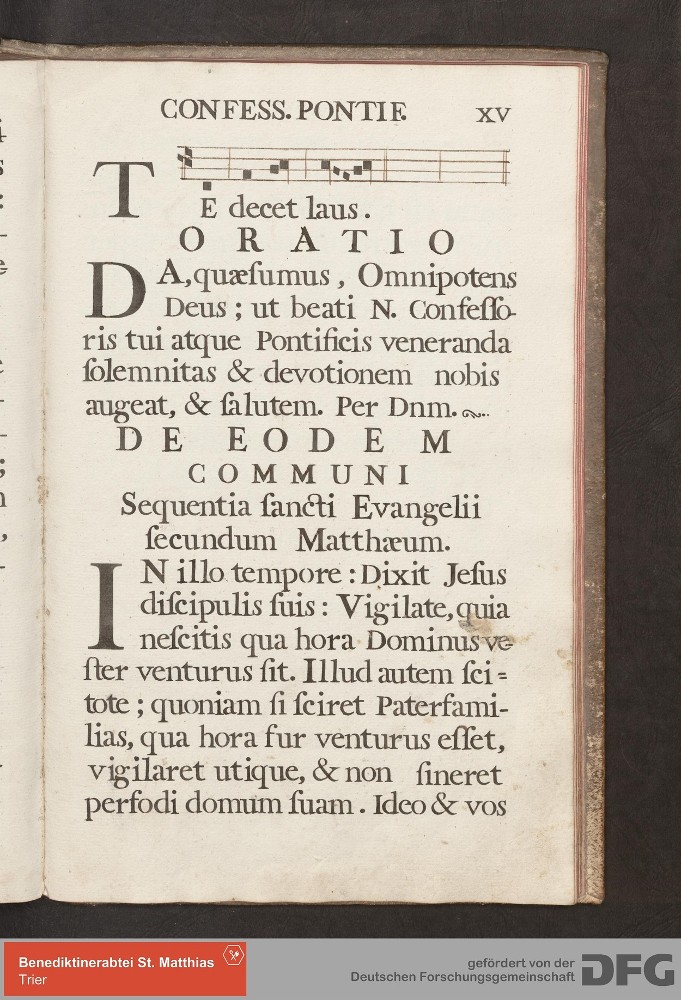 CONFESS. PONTIF. XV
TE decet laus.
ORATIO
DA, quæſumus, Omnipotens
Deus; ut beati N. Confeſſo-
ris tui atque Pontificis veneranda
ſolemnitas & devotionem nobis
augeat, & ſalutem. Per Dnm.
DE EODEM
COMMUNI
Sequentia ſancti Evangelii
ſecundum Matthæum.
IN illo tempore: Dixit Jeſus
diſcipulis ſuis: Vigilate, quia
neſcitis qua hora Dominus ve-
ſter venturus ſit. Illud autem ſci=
tote; quoniam ſi ſciret Paterfami-
lias, qua hora fur venturus eſſet,
vigilaret utique, & non ſineret
perfodi domum ſuam. Ideo & vos
Benediktinerabtei St. Matthias
Trier
gefördert von der
Deutschen Forschungsgemeinschaft
DFG